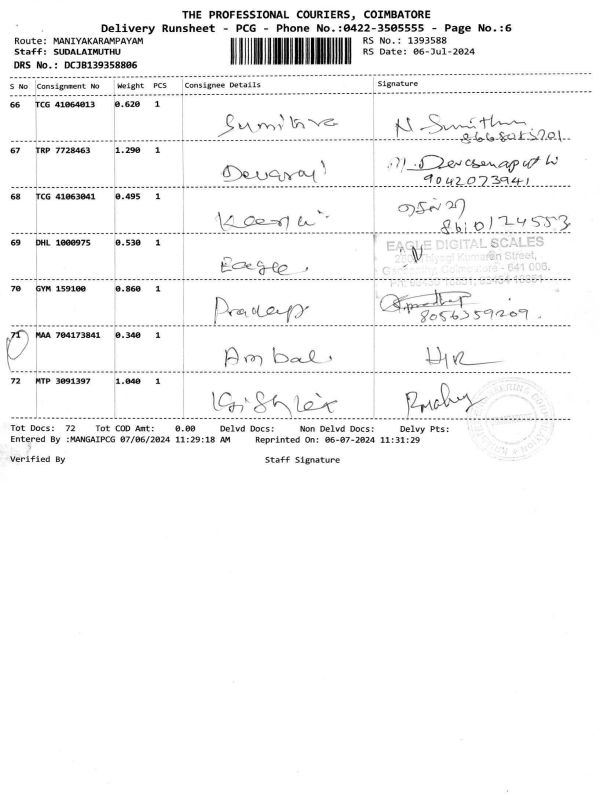 THE PROFESSIONAL COURIERS, COIMBATORE
Delivery Runsheet - PCG - Phone No.:0422-3505555 - Page No.:6
Route: MANIYAKARAMPAYAM RS No.: 1393588
Staff: SUDALAIMUTHU RS Date: 06-Jul-2024
DRS No.: DCJB139358806
S No Consignment No Weight PCS Consignee Details Signature
66 TCG 41064013 0.620 1
Sumithra N. Sumithra
67 TRP 7728463 1.290 1
Devaraj
9042073941
68 TCG 41063041 0.495 1
8610124553
69 DHL 1000975 0.530 1 EAGLE DIGITAL SCALES
Eagle. Thiyagi Kumaran Street,
Coimbatore - 641 006.
70 GYM 159100 0.860 1
Pradeep 8056359209.
71 MAA 704173841 0.340 1
Ambal.
72 MTP 3091397 1.040 1
Tot Docs: 72 Tot COD Amt: 0.00 Delvd Docs: Non Delvd Docs: Delvy Pts:
Entered By :MANGAIPCG 07/06/2024 11:29:18 AM Reprinted On: 06-07-2024 11:31:29
Verified By Staff Signature